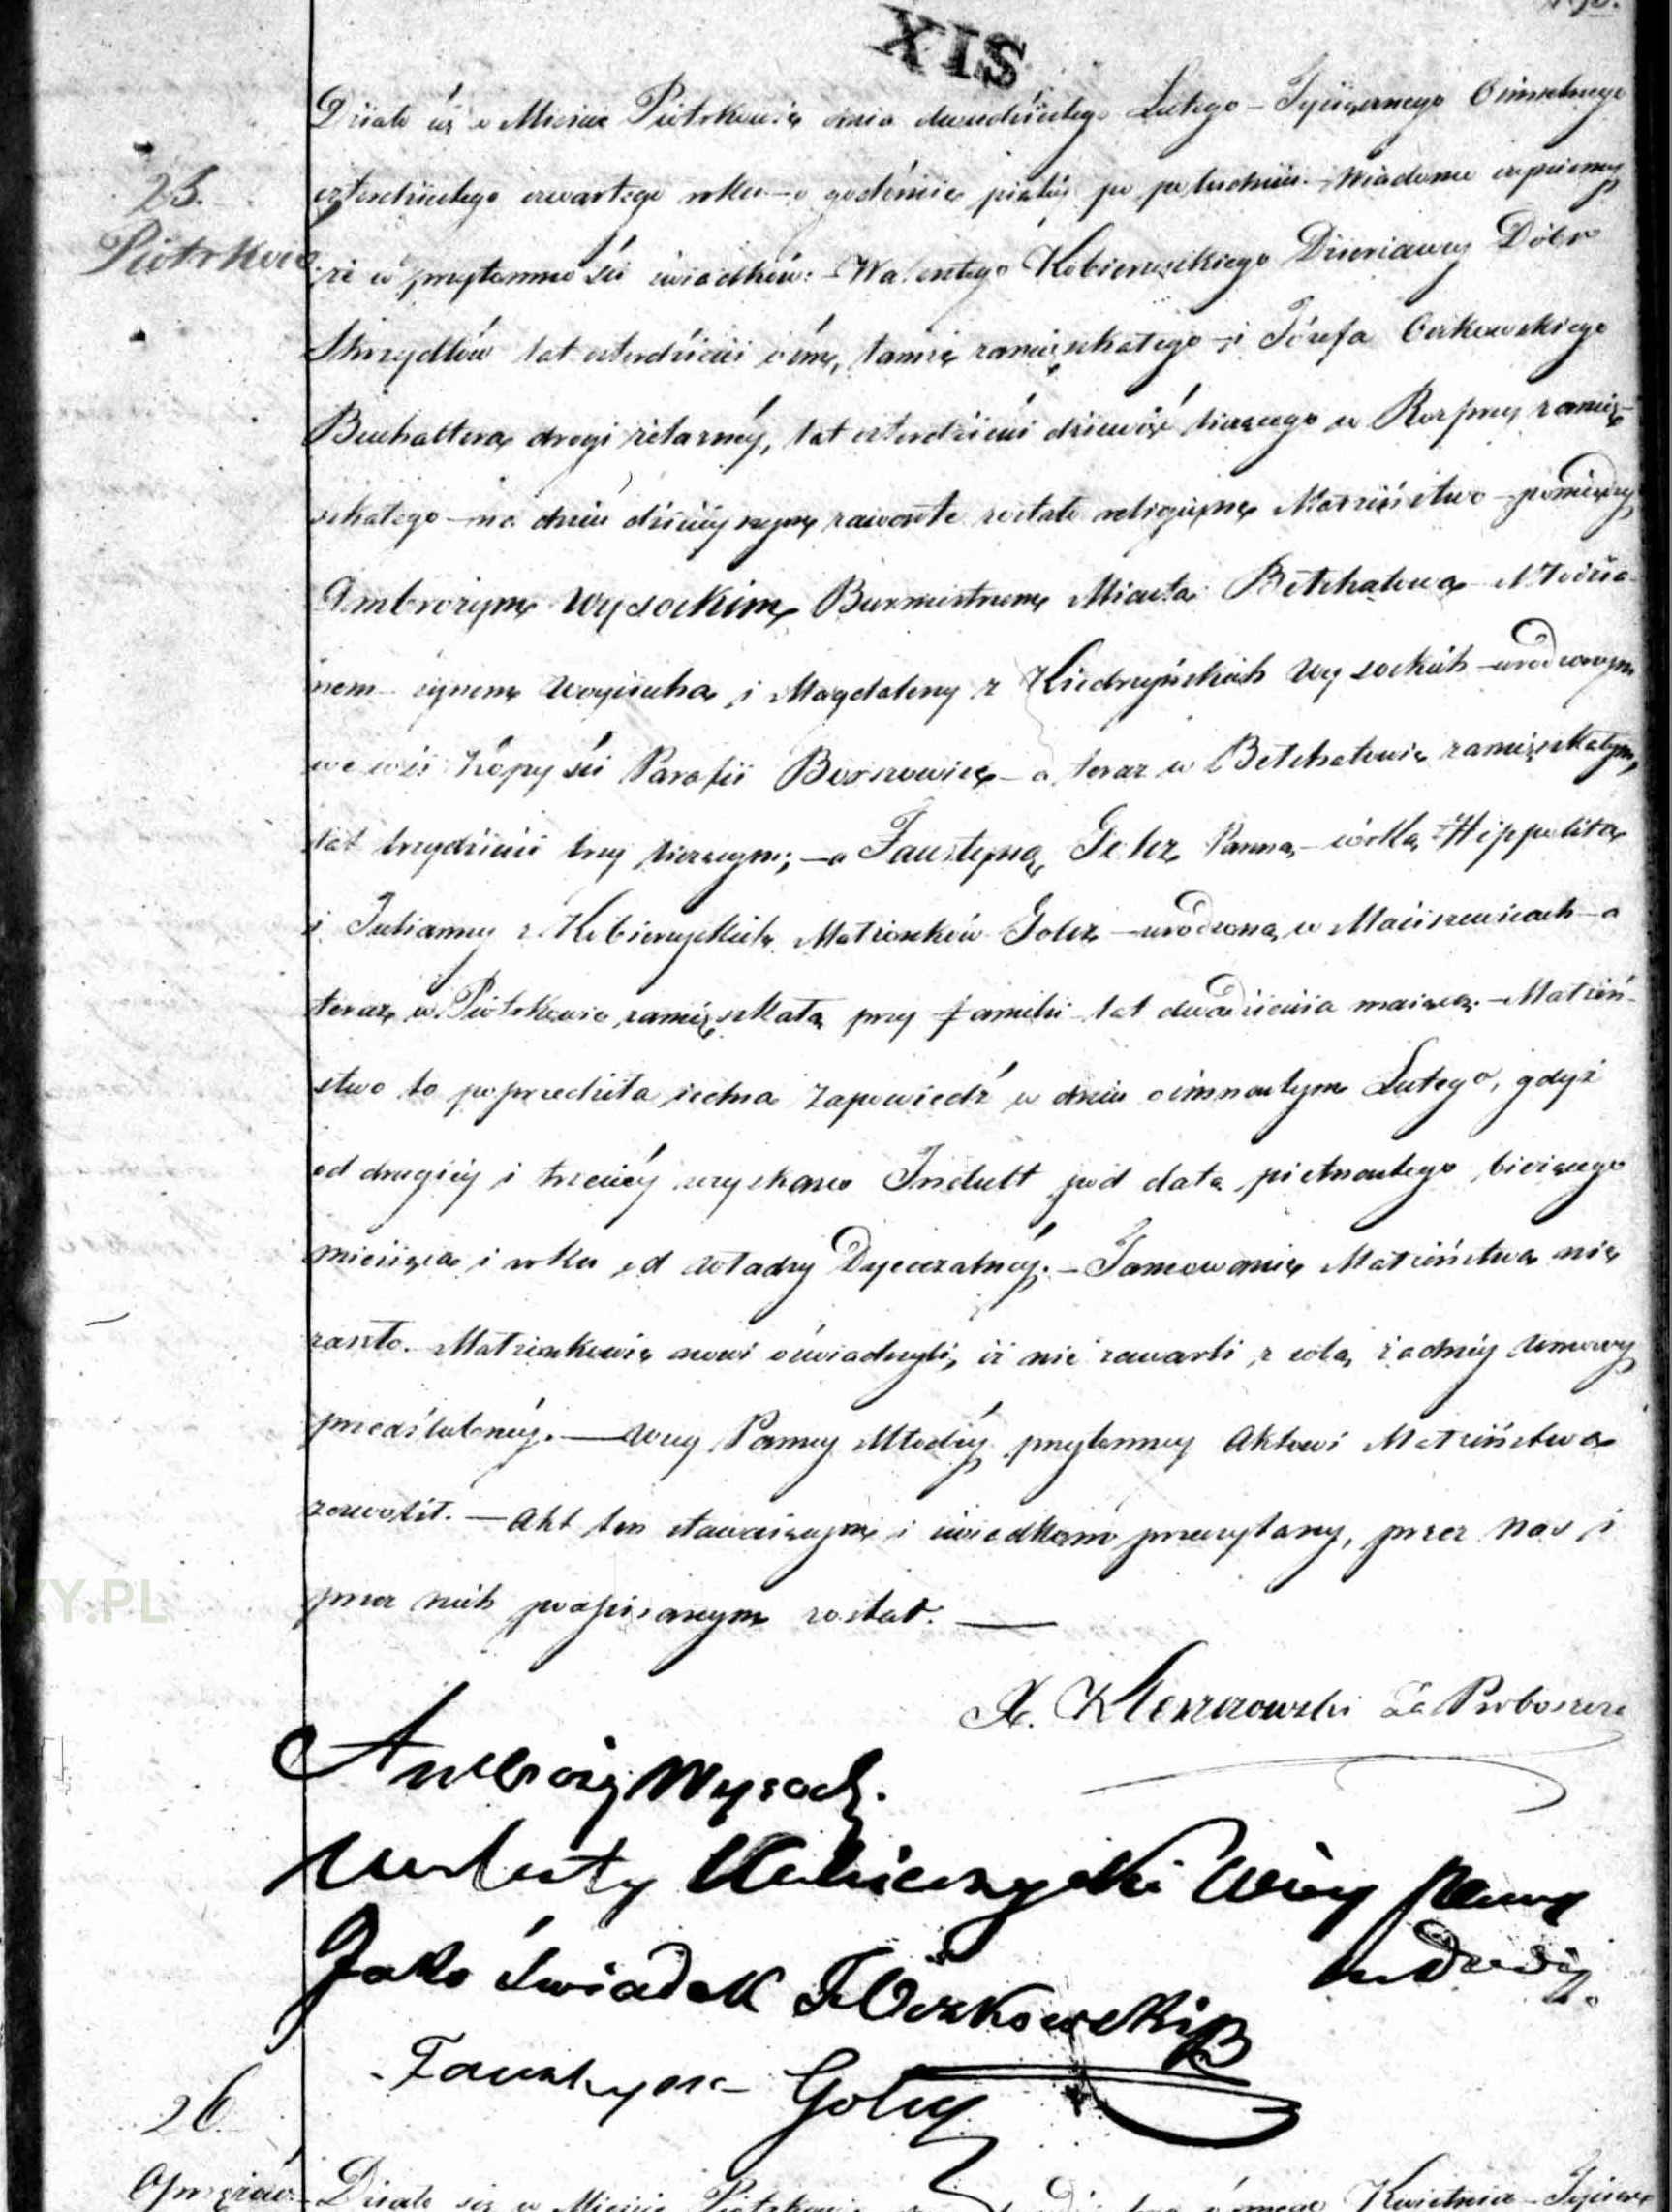 SIX
25.
Piotrków
Działo się w Mieście Piotrkowie dnia dwudziestego Lutego – Tysiącznego Ośmsetnego
czterdziestego czwartego roku – o godzinie piątej po południu. – Wiadomo czyniemy
że w przytomności świadków: – Walentego Kobierzyckiego Dzierżawcy Dóbr
Skrzydłów lat czterdzieści ośm, tamże zamieszkałego – i Józefa Cerkowskiego
Buchaltera drogi żelaznéj, lat czterdzieści dziewięć liczącego w Rozprzy zamie-
szkałego – na dniu dzisiejszym zawarte zostało religijne Małżeństwo – pomiędzy
Ambrożym Wysockim Burmistrzem Miasta Bełchatowa – Młodzia-
nem – synem Woyciecha i Magdaleny z Kiedrzyńskich Wysockich – urodzonym
we wsi Kópyści Parafii Borszowice – a teraz w Bełchatowie zamieszkałym,
lat trzydzieści trzy liczącym; – a Faustyną Golcz Panną – córką Hippolita
i Julianny z Kobierzyckich Małżonków Golcz – urodzoną w Maciszewicach – a
teraz w Piotrkowie zamieszkałą przy familii – lat dwadzieścia maiącą. – Małżeń-
stwo to poprzedziła iedna zapowiedź w dniu ośmnastym Lutego, gdyż
od drugiéj i trzeciéj uzyskano Indult pod datą pietnastego bieżącego
miesiąca i roku od władzy Dyecezalnéj. – Tamowanie Małżeństwa nie
zaszło. Małżonkowie nowi oświadczyli, iż nie zawarli z sobą żadnéj umowy
przedślubnéj. — Wuy Panny Młodéj przytomny Aktowi Małżeństwa
zezwolił. — Akt ten stawaiącym i świadkom przeczytany, przez Nas i
przez nich podpisanym został. —
X. Kleszczowski Za Proboszcza
Ambroży Wysocki.
Walenty Kobierzycki Wuy Panny
Młodéj.
Jako świadek J. Cerkowski
Faustyna Golcz
26.
Działo się w Mieście Piotrkowie Kwietnia – Tysiącz